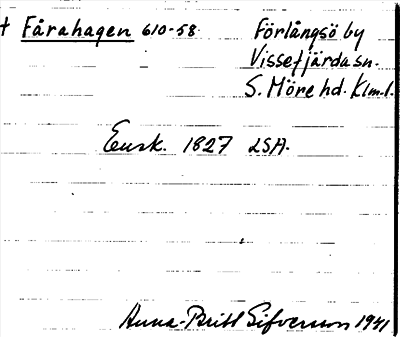 † Fårahagen 610-58. Förlångsö by
Vissefjärda sn.
S. Möre hd. Klm.l.
Ensk. 1827 LSA.
Anna-Britt Sifversson 1941